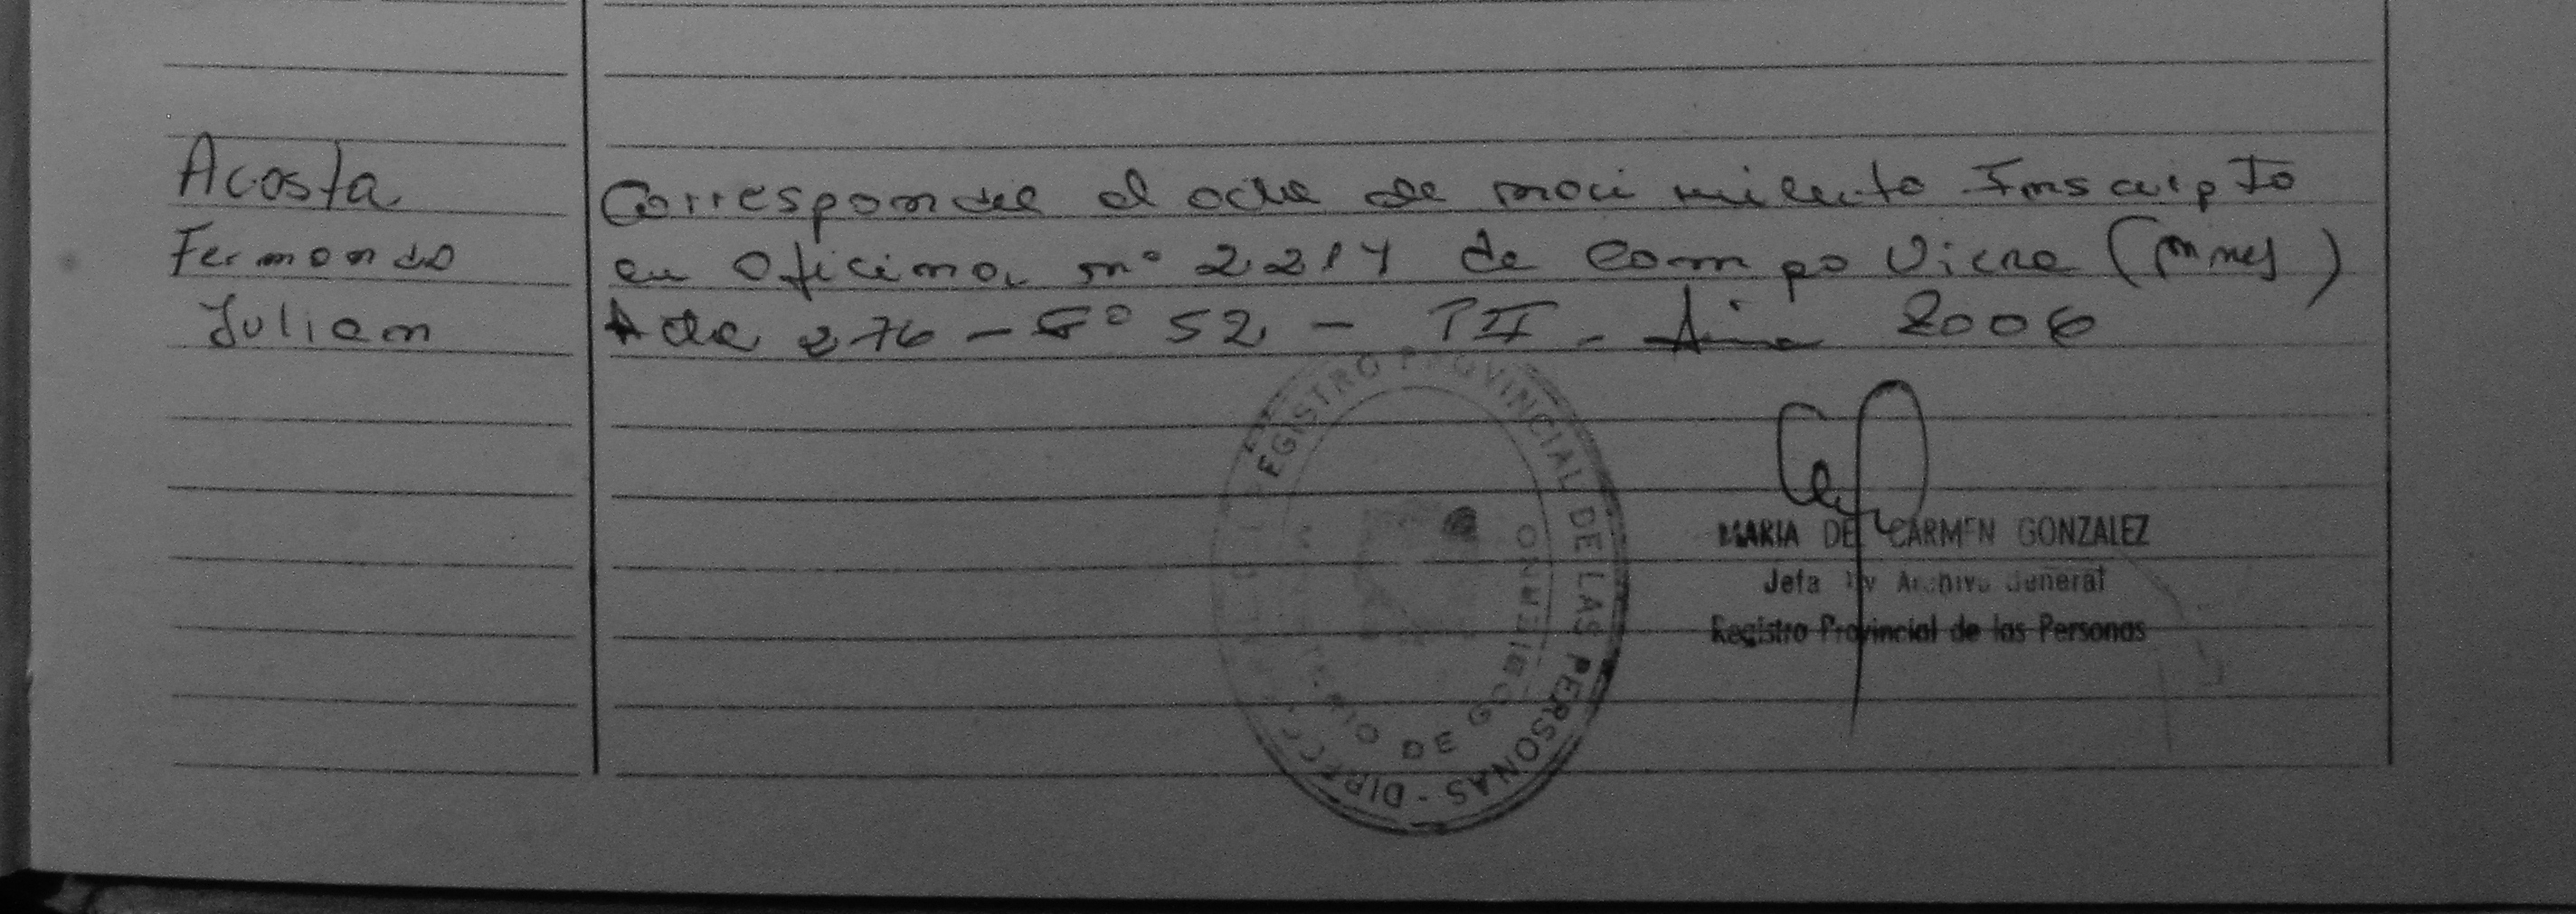 Acosta
Fernando
Julian
Corresponde al acta de nacimiento Inscripto
en Oficina nº 2214 de Campo Viera (Mnes)
Acta 276 - Fº 52 - TII - Año 2006
REGISTRO PROVINCIAL DE LAS PERSONAS - DIRECC
MINISTERIO DE GOBIERNO
MARIA DEL CARMEN GONZALEZ
Jefa Div Archivo General
Registro Provincial de las Personas